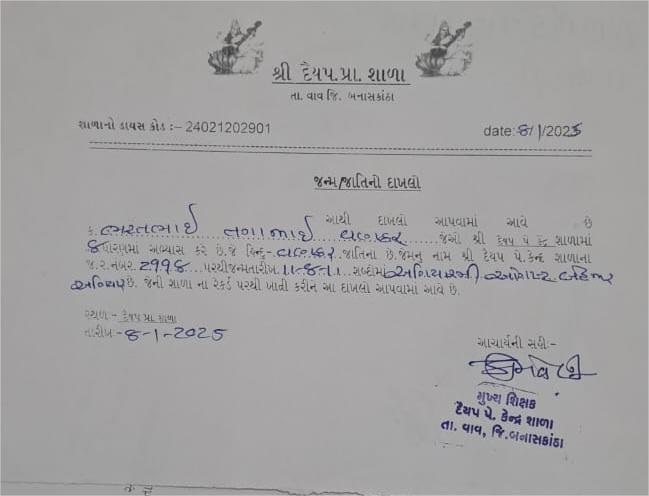 શ્રી દૈયપ.પ્રા. શાળા
તા. વાવ જિ. બનાસકાંઠા
શાળાનો ડાયસ કોડ :- 24021202901
date: 8/1/2025
જન્મ/જાતિનો દાખલો
આથી દાખલો આપવામાં આવે છે
કે ભરતભાઈ વણકર જેઓ શ્રી દૈયપ પે કેન્દ્ર શાળામાં
ધોરણમાં અભ્યાસ કરે છે.જે હિન્દુ- વણકર જાતિના છે.જેમનુ નામ શ્રી દૈયપ પે.કેન્દ્ર શાળાના
જ.ર.નંબર પરથીજન્મતારીખ 11-8-11 શબ્દોમાં અગિયારમી ઓગષ્ટ બે હજાર
અગિયાર છે. જેની શાળા ના રેકર્ડ પરથી ખાતી કરીને આ દાખલો આપવામાં આવે છે.
સ્થળ:- દૈયપ પ્રા શાળા
તારીખ:- 8-1-2025
આચાર્યની સહી:-
મુખ્ય શિક્ષક
દૈયપ પે. કેન્દ્ર શાળા
તા. વાવ, જિ.બનાસકાંઠા